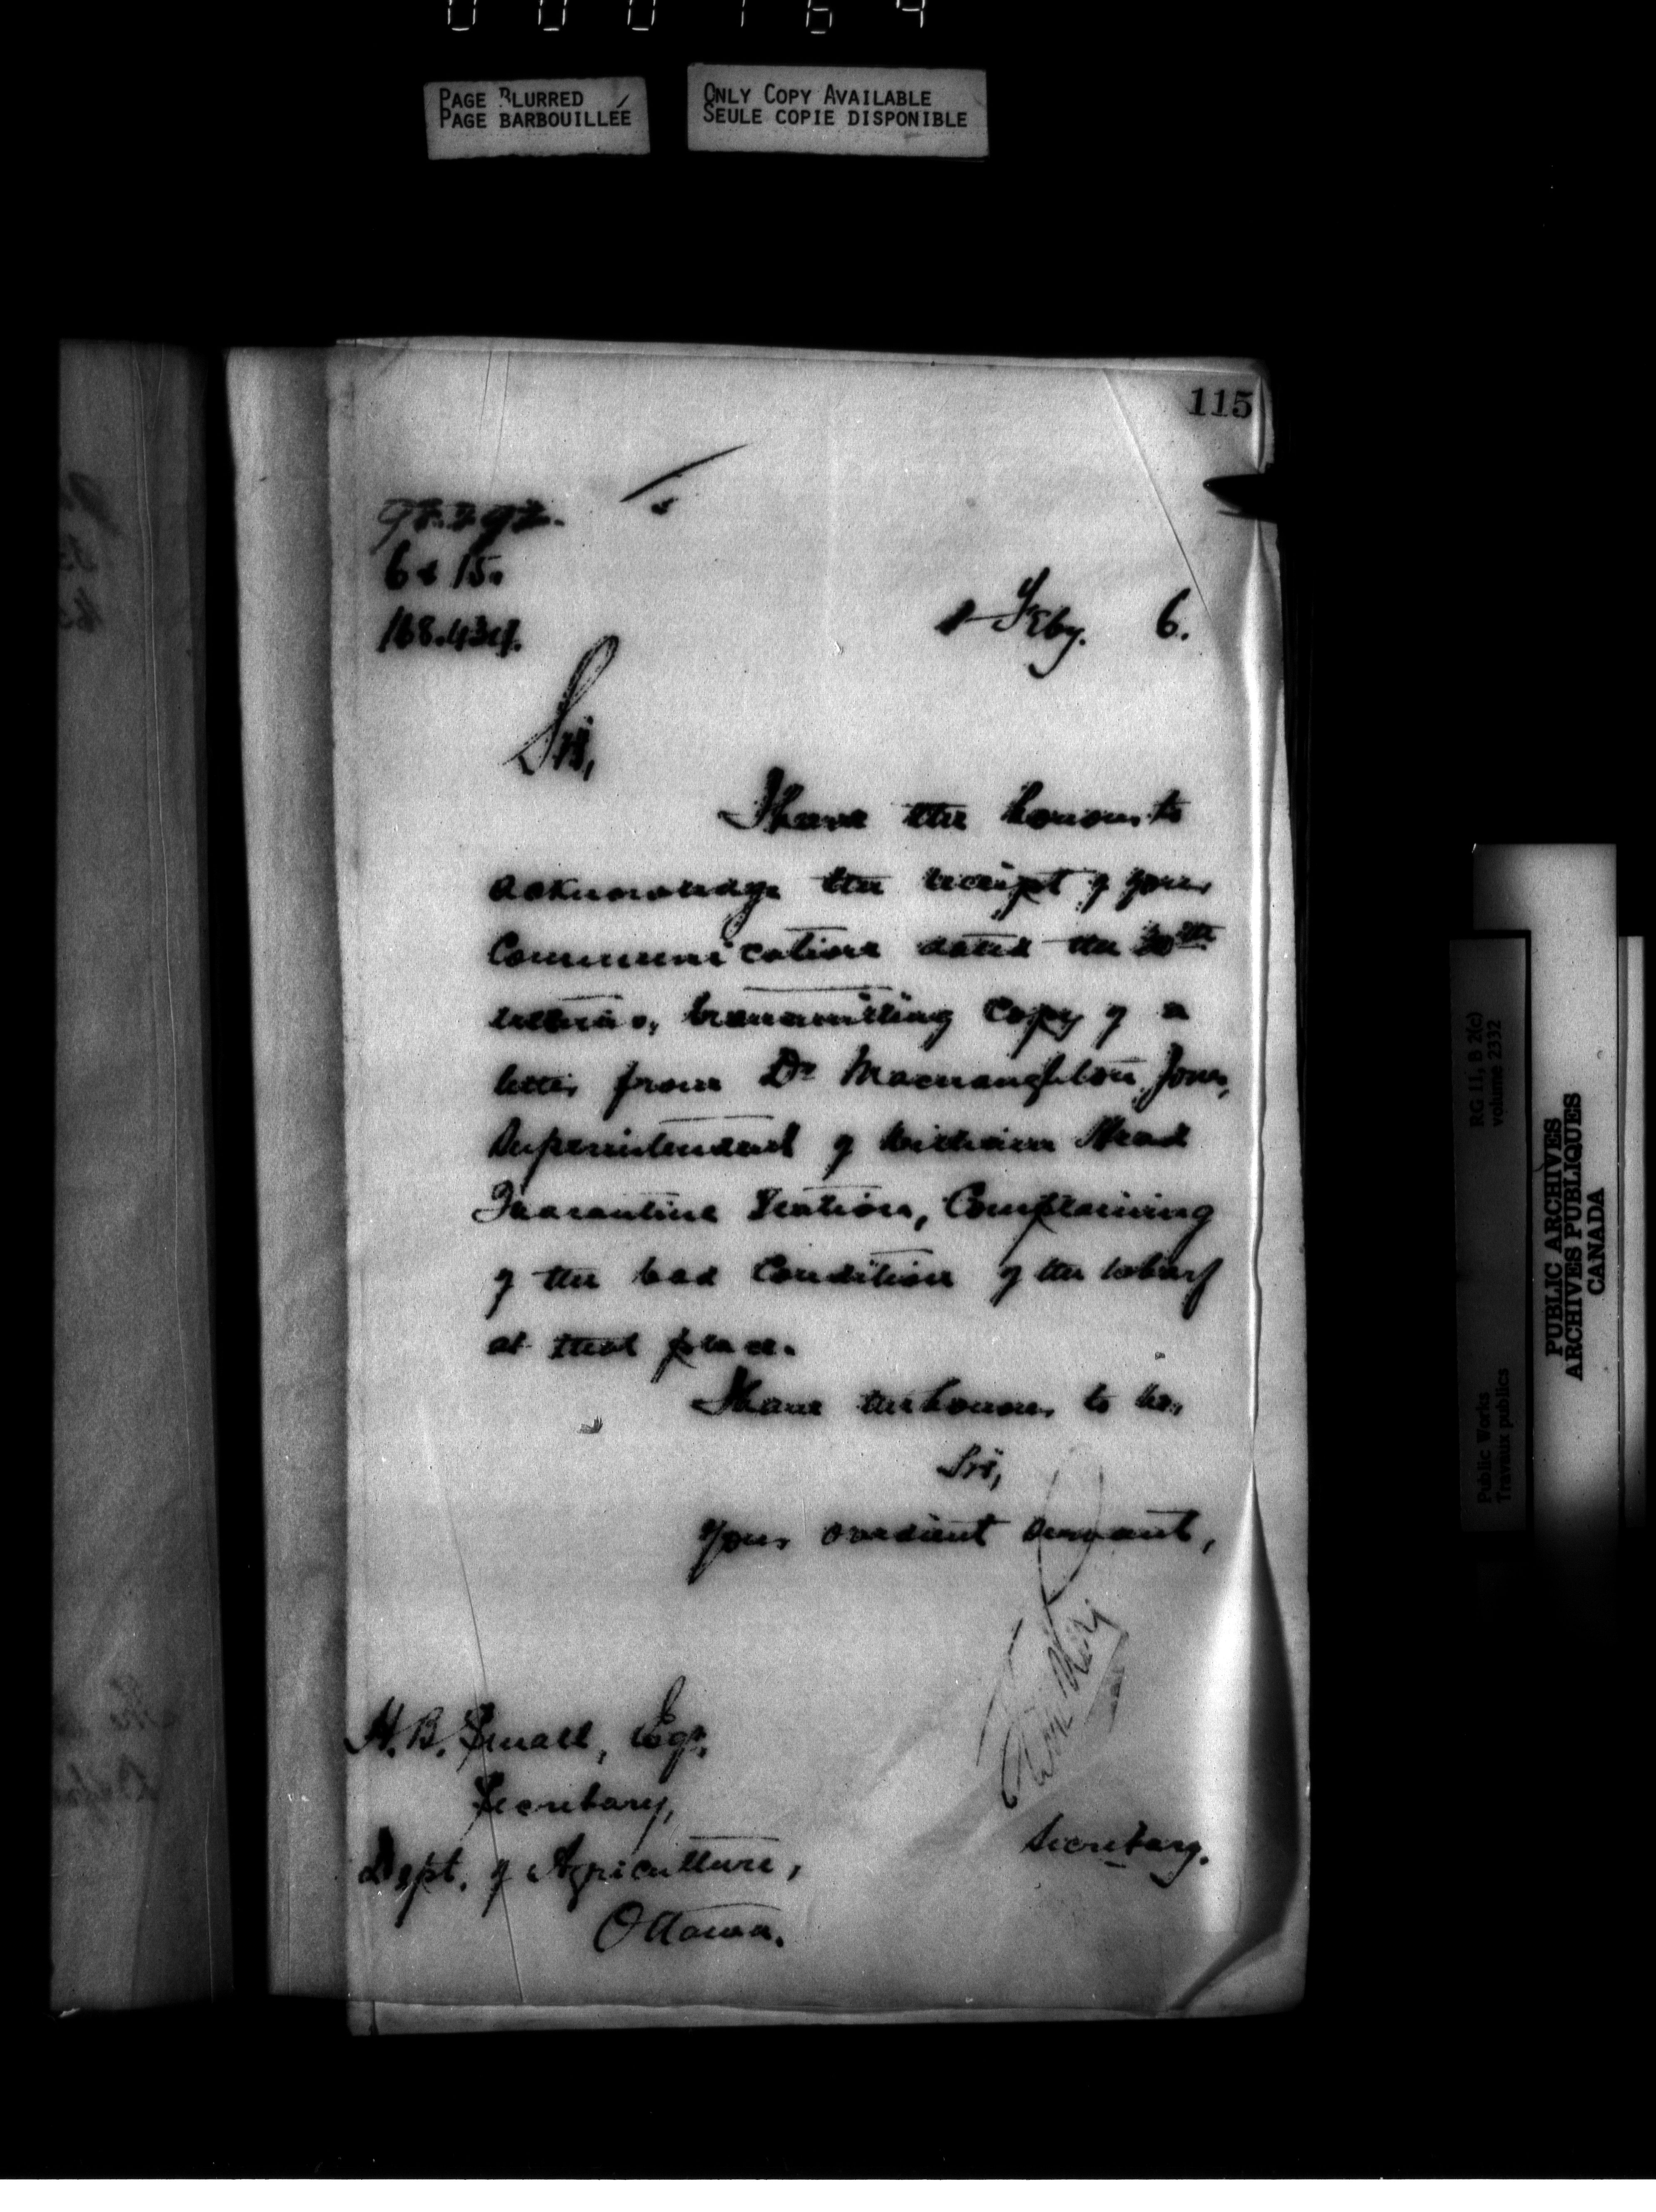 000164
PAGE BLURRED
PAGE BARBOUILLÉE
ONLY COPY AVAILABLE
SEULE COPIE DISPONIBLE
115
6 & 15.
168.434.
Feby. 6.
Sir,
I have the honour to
acknowledge the receipt of your
Communication dated the 30th
ultimo, transmitting copy of a
letter from Dr Macnaughton Jones,
Superintendent of William Head
Quarantine Station, Complaining
of the bad Condition of the wharf
at that place.
I have the honour to be,
Sir,
Your obedient servant,
H. B. Small, Esqr,
Secretary,
Dept. of Agriculture,
Ottawa.
Secretary.
RG 11, B 2(c)
volume 2332
Public Works
Travaux publics
PUBLIC ARCHIVES
ARCHIVES PUBLIQUES
CANADA